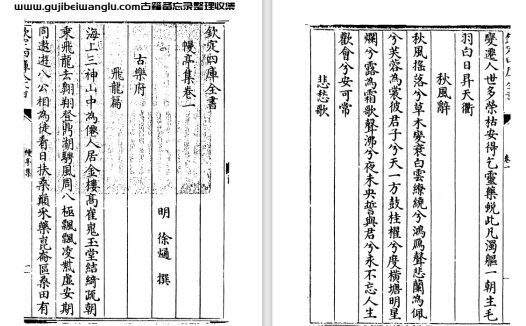 www.gujibeiwanglu.com古籍备忘录整理收集
欽定四庫全書
幔亭集卷一
明 徐熥 撰
古樂府
飛龍篇
海上三神山中為僊人居金樓髙崔嵬玉堂結綺疏朝
乗飛龍去朝翔登鼎湖騁風周八極飄飄凌紫虛安期
同遨遊八公相為徒看日扶桑顛采藥崑崙區桑田有
幔亭集
變遷人世多榮枯安得乞靈藥蛻此凡濁軀一朝生毛
羽白日昇天衢
秋風辭
秋風搖落兮草木變衰白雲繚繞兮鴻鴈聲悲蘭為佩
兮芙蓉為裳彼君子兮天一方鼓桂櫂兮度橫塘明星
爛兮露為霜歌聲沸兮夜未央誓與君兮永不忘人生
歡會兮安可常
悲愁歌
卷一